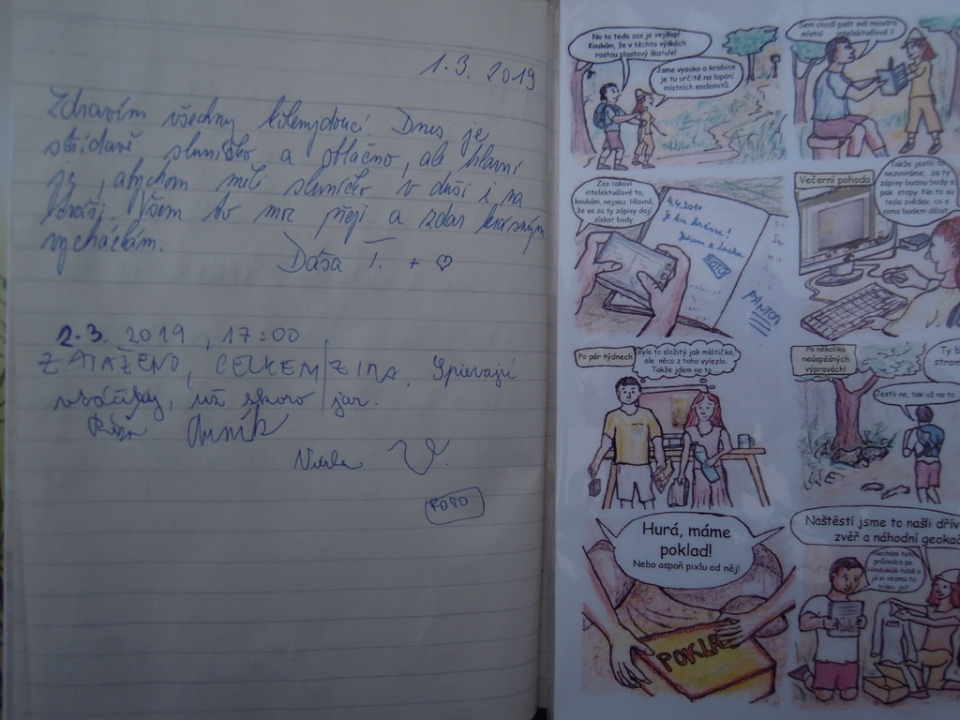 1.3. 2019
Zdravím všechny kolemjdoucí! Dnes je
střídavě sluníčko a oblačno, ale hlavní
je, abychom měli sluníčko v duši i na
Všem to moc přeji a zdar krásným
vycházkám.
Dáša T. + ♡
2.3. 2019, 17:00
ZATAŽENO, CELKEM ZIMA. Spievajú
už skoro jar.
FOTO
No to teda zas je vejšlap!
Koukám, že v těchto výškách
rostou plastový škatule!
Jsme vysoko a krabice
je tu určitě na lapání
místních endemitů.
Sem chodí psát svá moudra
místní intelektuálové?
Zas takoví
intelektuálové to,
koukám, nejsou. Hlavně,
že se za ty zápisy dají
získat body
4.4.2010
FOTO
Večerní pohoda
Takže jestli to
nezvoráme, za ty
zápisy budou body a
pak stopy. No to su
teda zvědav, co s
nima budem dělat
Po pár týdnech
Bylo to složitý jak mlátička,
ale něco z toho vylezlo.
Takže jdem na to
Po několika
neúspěšných
výpravách!
Ty b
strom
Jestli ne, tak už na to
Hurá, máme
poklad!
Nebo aspoň pixlu od něj!
POKLA
Naštěstí jsme to našli dřív
zvěř a náhodní geokač
Nechám toho
průvodce po
Hindúkúši tobě a
já si vezmu to
triko, jo?